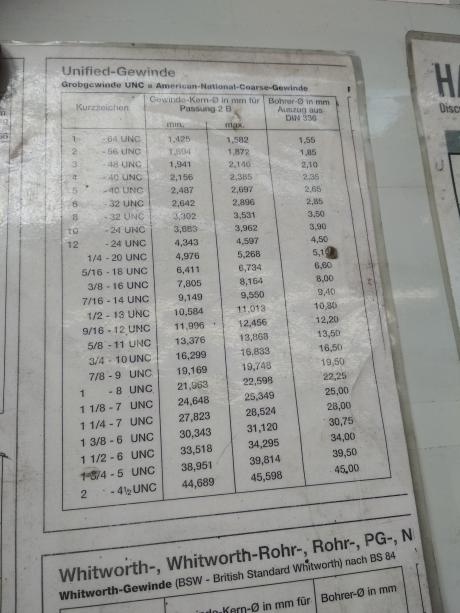 Unified-Gewinde
Grobgewinde UNC = American-National-Coarse-Gewinde
Kurzzeichen Gewinde-Kern-Ø in mm für Passung 2 B Bohrer-Ø in mm Auszug aus DIN 336
min. max.
1 - 64 UNC 1,425 1,582 1,55
2 - 56 UNC 1,694 1,872 1,85
3 - 48 UNC 1,941 2,146 2,10
4 - 40 UNC 2,156 2,385 2,35
5 - 40 UNC 2,487 2,697 2,65
6 - 32 UNC 2,642 2,896 2,85
8 - 32 UNC 3,302 3,531 3,50
10 - 24 UNC 3,683 3,962 3,90
12 - 24 UNC 4,343 4,597 4,50
1/4 - 20 UNC 4,976 5,268
5/16 - 18 UNC 6,411 6,734 6,60
3/8 - 16 UNC 7,805 8,164 8,00
7/16 - 14 UNC 9,149 9,550 9,40
1/2 - 13 UNC 10,584 11,013 10,80
9/16 - 12 UNC 11,996 12,456 12,20
5/8 - 11 UNC 13,376 13,868 13,50
3/4 - 10 UNC 16,299 16,833 16,50
7/8 - 9 UNC 19,169 19,748 19,50
1 - 8 UNC 21,963 22,598 22,25
1 1/8 - 7 UNC 24,648 25,349 25,00
1 1/4 - 7 UNC 27,823 28,524 28,00
1 3/8 - 6 UNC 30,343 31,120 30,75
1 1/2 - 6 UNC 33,518 34,295 34,00
1 3/4 - 5 UNC 38,951 39,814 39,50
2 - 4½ UNC 44,689 45,598 45,00
Whitworth-, Whitworth-Rohr-, Rohr-, PG-, N
Whitworth-Gewinde (BSW - British Standard Whitworth) nach BS 84
Gewinde-Kern-Ø in mm für Bohrer-Ø in mm